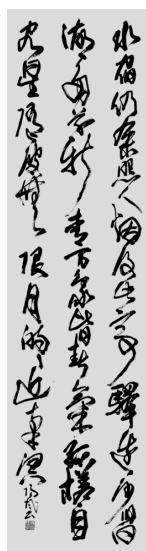 水宿仍余照人烟復此亭驛邊沙舊白
湖外草新青万象皆春氣孤槎自
客星隨波無限月的的近南溟